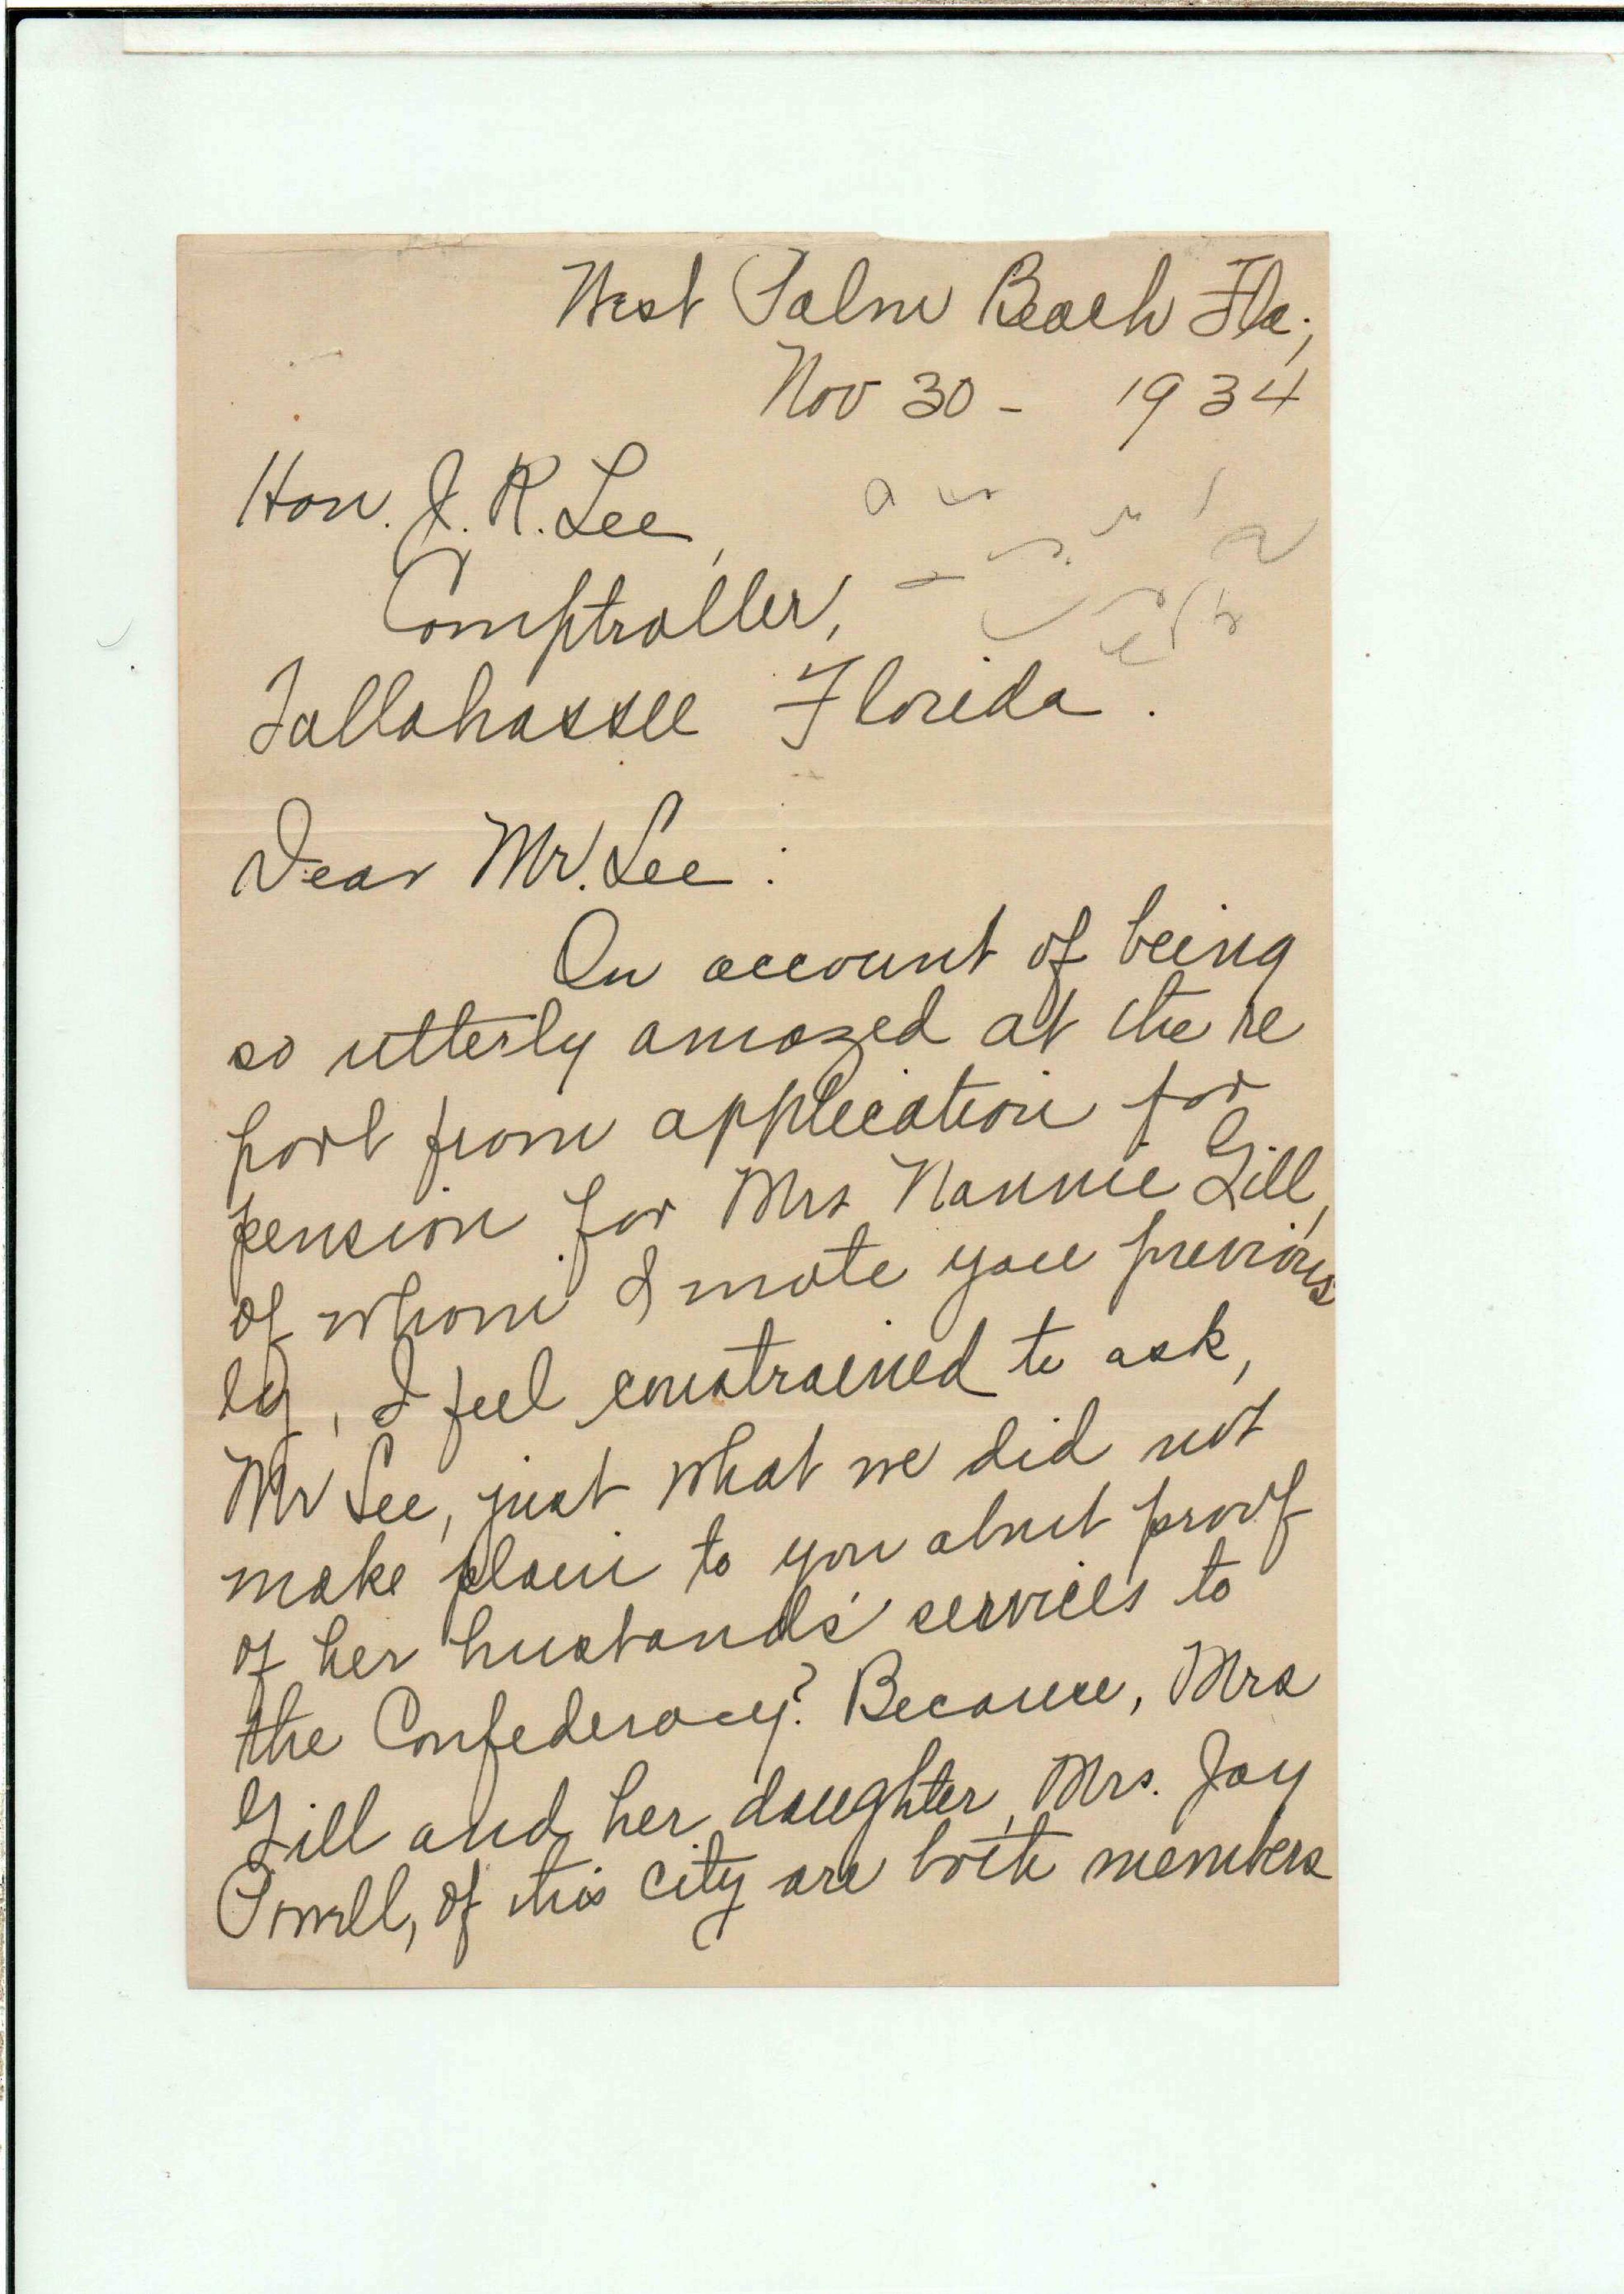 West Palm Beach Fla.,
Nov 30 - 1934
Hon. J. R. Lee,
Comptroller,
Tallahassee Florida.
Dear Mr. Lee:
On account of being
so utterly amazed at the re
port from application for
pension for Mrs Nannie Gill,
of whom I wrote you previous
ly, I feel constrained to ask,
Mr Lee, just what we did not
make plain to you about proof
of her husband's services to
the Confederacy? Because, Mrs
Gill and her daughter, Mrs. Jay
Powell, of this city are both members